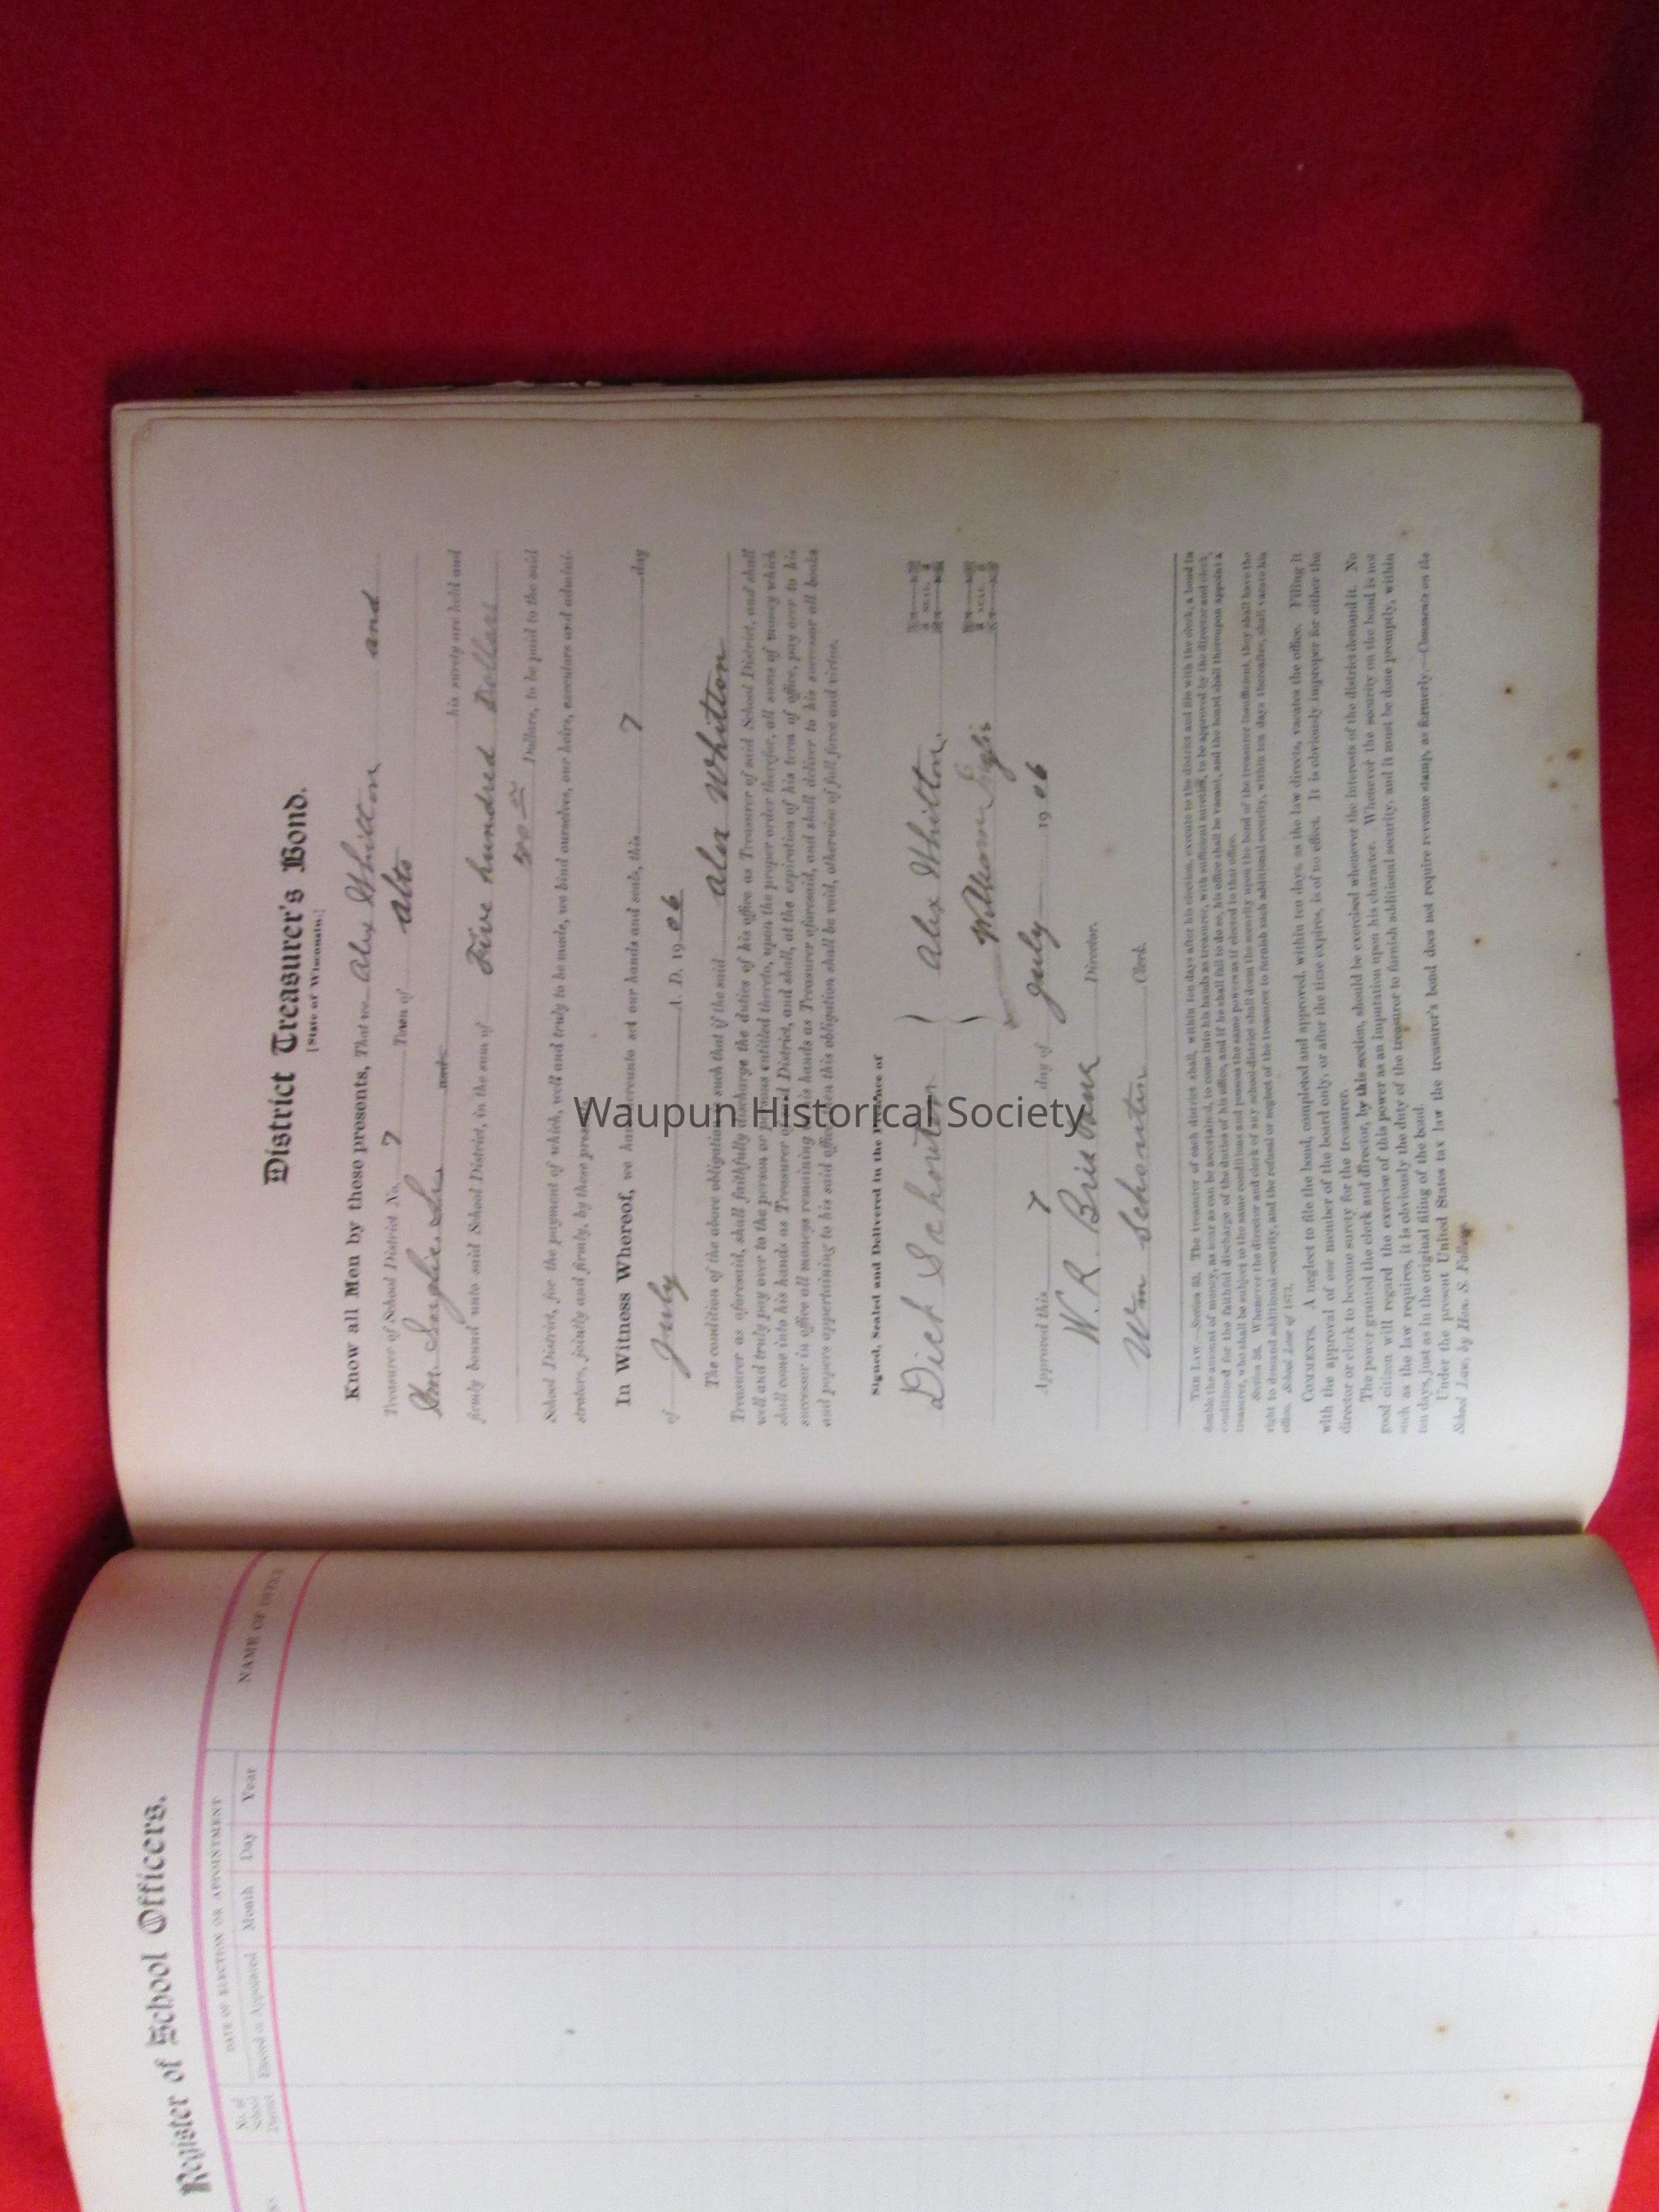 Register of School Officers.
DATE OF ELECTION OR APPOINTMENT
No. of School District
Elected or Appointed
Month
Day
Year
NAME OF OFFICE
District Treasurer's Bond.
[State of Wisconsin.]
Know all Men by these presents, That we Alex Whitton and
Treasurer of School District No. 7 Town of Alto
Wm and
his surety are held and
firmly bound unto said School District, in the sum of Five hundred Dollars
500 Dollars, to be paid to the said
School District, for the payment of which, well and truly to be made, we bind ourselves, our heirs, executors and adminis-
strators, jointly and firmly, by these
In Witness Whereof, we hereunto set our hands and seals, this 7 day
of July A. D. 1906
The condition of the above obligation such that if the said Alex Whitton
Treasurer as aforesaid, shall faithfully discharge the duties of his office as Treasurer of said School District, and shall
well and truly pay over to the person or persons entitled thereto, upon the proper order therefor, all sums of money which
shall come into his hands as Treasurer of said District, and shall, at the expiration of his term of office, pay over to his
successor in office all moneys remaining in his hands as Treasurer aforesaid, and shall deliver to his successor all books
and papers appertaining to his said office, then this obligation shall be void, otherwise of full force and virtue.
Signed, Sealed and Delivered in the Presence of
Dick Schouten Alex Whitton. SEAL
William SEAL
Approved this 7 day of July 1906
W. R. Director.
Wm Schouten Clerk.
THE LAW.—Section 35. The treasurer of each district shall, within ten days after his election, execute to the district and file with the clerk, a bond in
double the amount of money, as near as can be ascertained, to come into his hands as treasurer, with sufficient sureties, to be approved by the director and clerk,
conditioned for the faithful discharge of the duties of his office, and if he shall fail to do so, his office shall be vacant, and the board shall thereupon appoint a
treasurer, who shall be subject to the same conditions and possess the same powers as if elected to that office.
Section 36. Whenever the director and clerk of any school district shall deem the security upon the bond of the treasurer insufficient, they shall have the
right to demand additional security, and the refusal or neglect of the treasurer to furnish such additional security, within ten days thereafter, shall vacate his
office. School Law of 1873.
COMMENTS. A neglect to file the bond, completed and approved, within ten days, as the law directs, vacates the office. Filing it
with the approval of one member of the board only, or after the time expires, is of no effect. It is obviously improper for either the
director or clerk to become surety for the treasurer.
The power granted the clerk and director, by this section, should be exercised whenever the interests of the district demand it. No
good citizen will regard the exercise of this power as an imputation upon his character. Whenever the security on the bond is not
such as the law requires, it is obviously the duty of the treasurer to furnish additional security, and it must be done promptly, within
ten days, just as in the original filing of the bond.
Under the present United States tax law the treasurer's bond does not require revenue stamp, as formerly.—Comments on the
School Law, by Hon. S. Fallows.
Waupun Historical Society